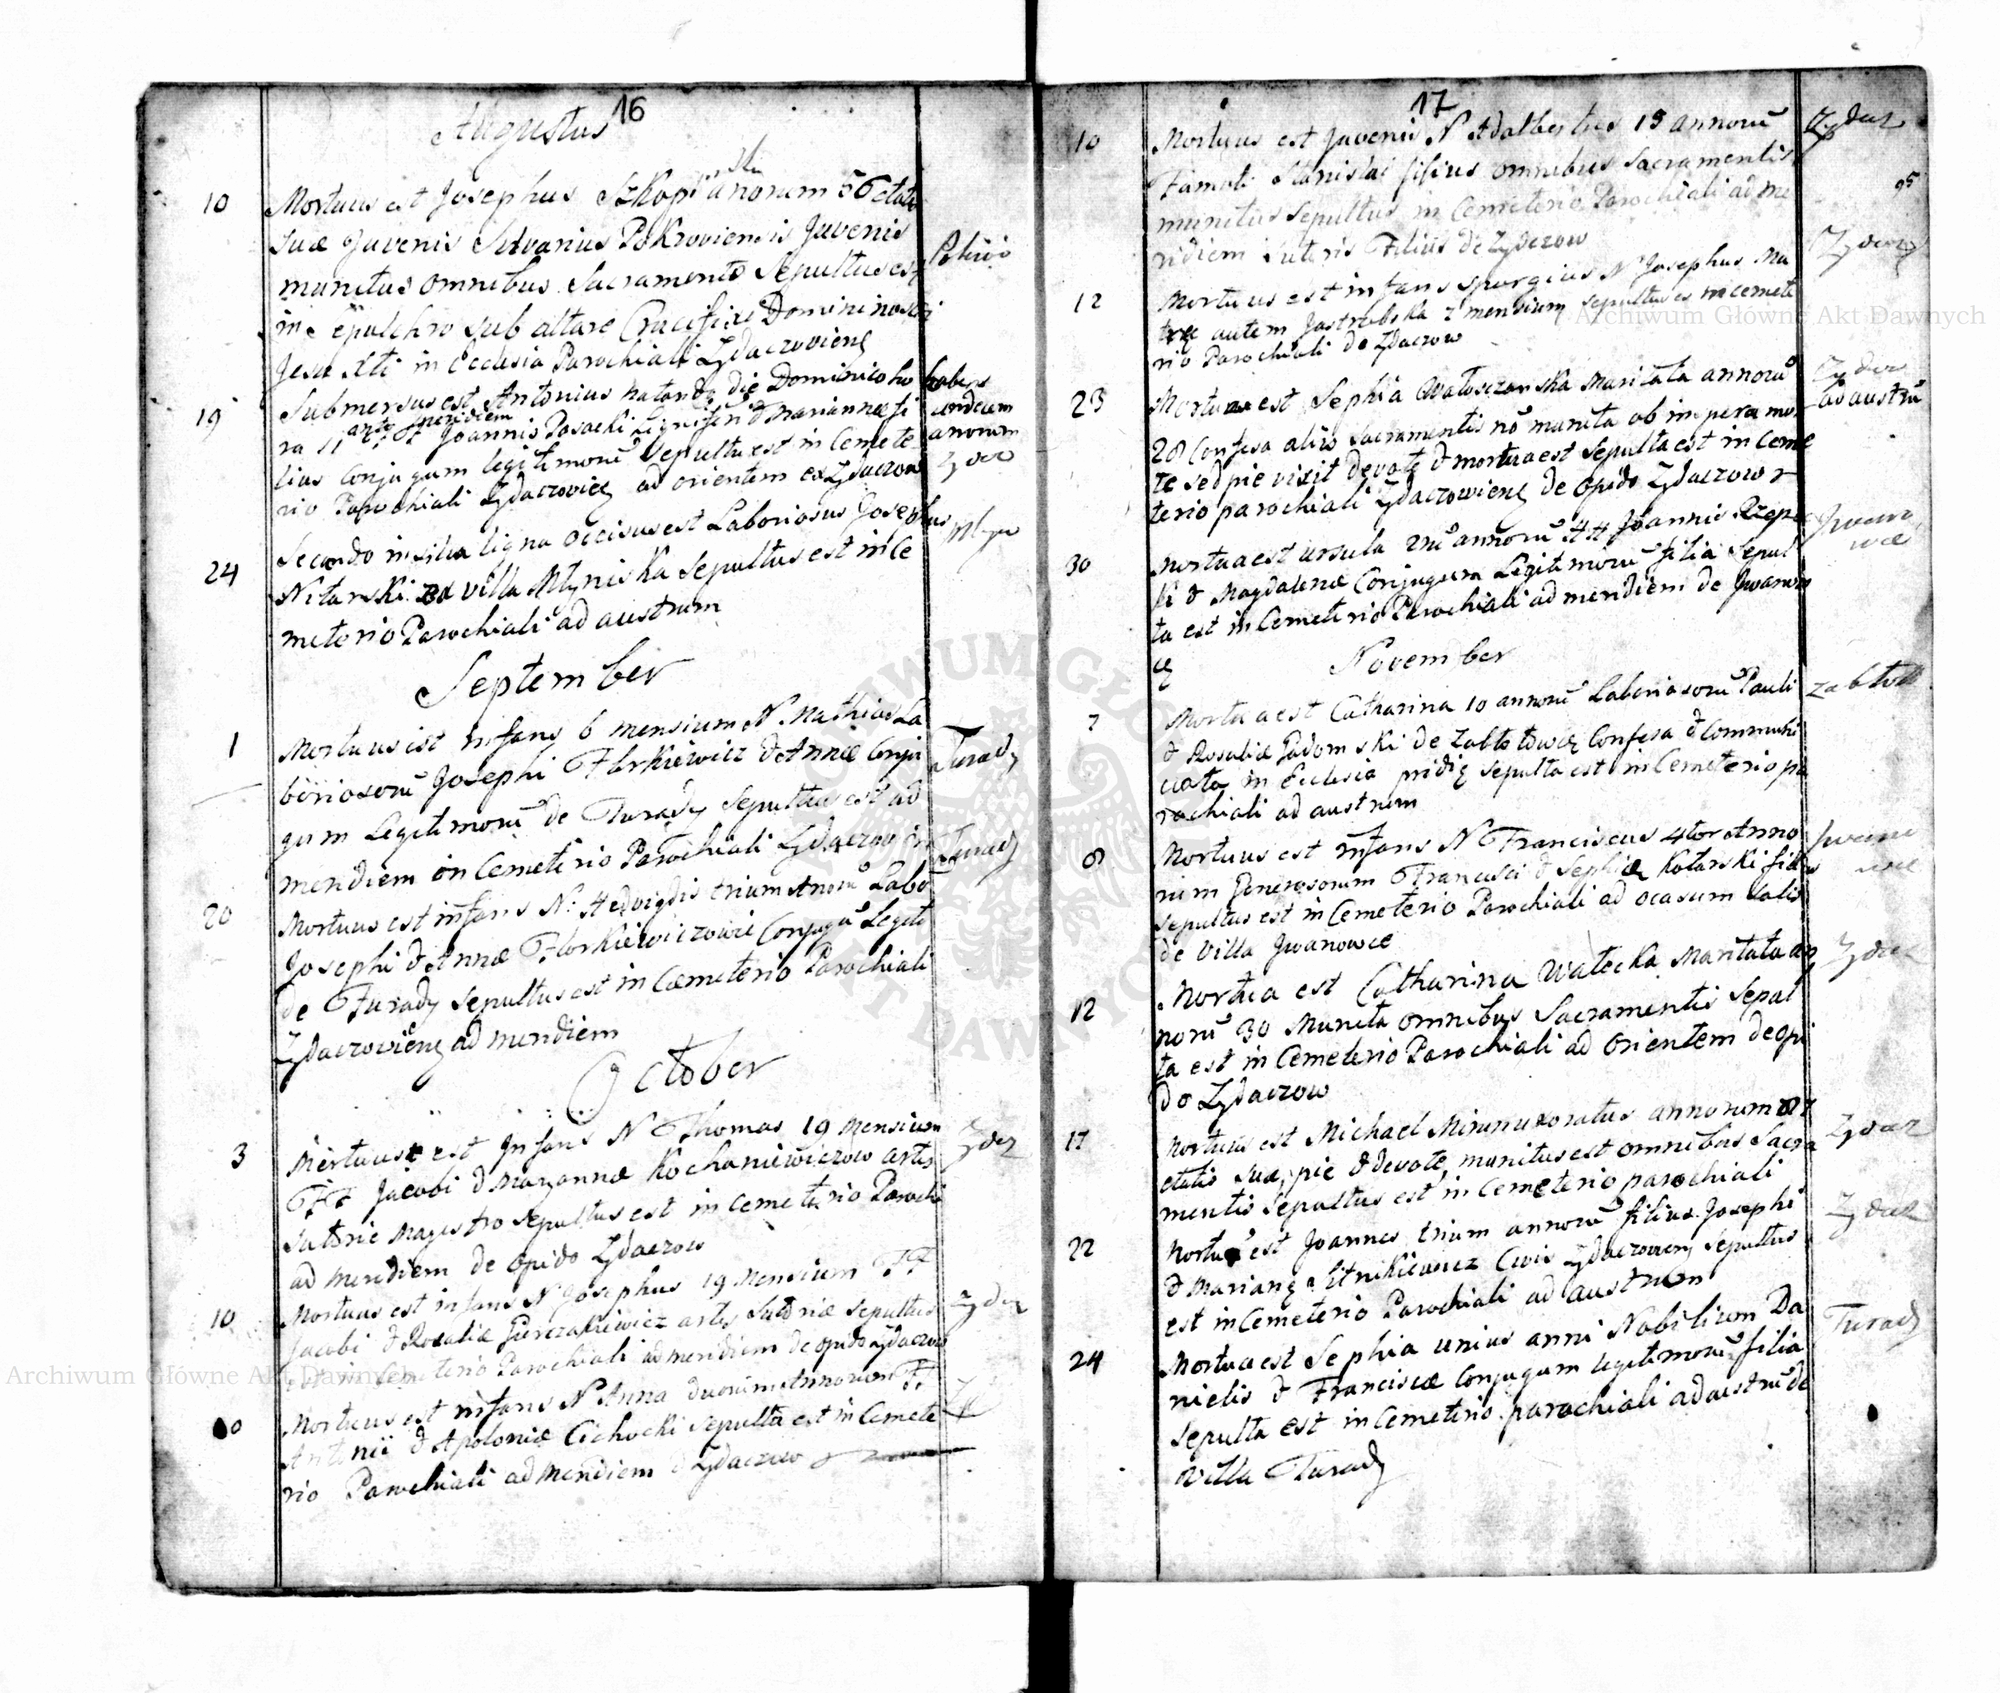 16
Augustus
10 Mortuus est Josephus Szkopi anorum 56 etatis
suæ Juvenis Silvanus Pokroviensis Juvenis
munitus omnibus Sacramentis Sepultus est
in Sepulchro sub altare Crucifixi Domini nostri
Jesu Xti in Ecclesia Parochiali Zydaczoviens
19 Submersus est Antonius natando die Dominico ho habens
ra 11 ante meridiem Joannis Posacki & Mariannæ fi undecim
lius Conjugum legitimorū Sepultus est in Cemete anorum
rio Parochiali Zydaczovieñ ad orientem ex Zydaczow
24 Secando in silva ligna occisus est Laboriosus Josephus
Nitarski villa Młyniska Sepultus est in Ce
meterio Parochiali ad austrum
September
1 Mortuus est infans 6 mensium N. Mathias La
boriosorū Josephi Florkiewicz & Annæ Conju Turady
gum Legitimorū de Turady Sepultus est ad
meridiem in Cemeterio Parochiali Zydaczov Turady
20 Mortuus est infans N: Hedvigdis trium Anorū Labo
Josephi & Annæ Florkiewiczowie Conjugū Legiti
de Turady Sepultus est in Cæmeterio Parochiali
Zydaczovieñ ad meridiem
October
3 Mortuus est Infans N Thomas 19 Mensium
FF Jacobi & Maryannæ Kochaniewiczow artis
Sutoriæ Magistro Sepultus est in Cemeterio Parochi
ad meridiem de Opido Zydaczow
10 Mortuus est infans N Josephus 19 Mensium FF
Jacobi & Rosaliæ Gurczakiewicz artis Sutoriæ Sepultus
est in Cemeterio Parochiali ad meridiem de opido Zydaczow
Mortuus est infans N Anna duorum Annorum FF
Antonii & Apoloniæ Cichocki Sepulta est in Cemete
rio Parochiali ad Meridiem d Zydaczow
17
10 Mortuus est Juvenis N Adalbertus 15 annorū Zydacz
Famati Stanislai filius omnibus Sacramentis 95
munitus Sepultus in Cemeterio Parochiali ad me
ridiem Sutoris Filius de Zydaczow
12 Mortuus est infans spurgius N Josephus Ma
tre autem Jastrzebska 2 mensium sepultus es in cemete
rio Parochiali de Zydaczow
23 Mortua est Sophia Maritata annorū
28 Confesa aliis Sacramentis nō munita ob
te sed pie vixit devote & mortua est Sepulta est in Ceme
terio parochiali Zydaczowieñ de Opido Zydaczow ad austrū
30 Mortua est Ursula annorū 44 Joannis Rzepe
ki & Magdalenæ Conjugum Legitimorū filia Sepul
ta est in Cemeterio Parochiali ad meridiem de Jwanow
ce
November
7 Mortua est Catharina 10 annorū Laboriosorū Pauli
& Rosaliæ Gadomski de Zabłotowce Confesa & Communi
cata in Ecclesia pridie sepulta est in Cemeterio pa
rochiali ad austrum
8 Mortuus est infans N Franciscus 4tor Anno
rum Generosorum Francisci & Sophiæ Kotarski filius
Sepultus est in Cemeterio Parochiali ad ocasum solis
de Villa Jwanowce
12 Mortua est Catharina Watecka Maritata an
norū 30 Munita omnibus Sacramentis Sepul
ta est in Cemeterio Parochiali ad Orientem de Opi
do Zydaczow
17 Mortuus est Michael annorum
etatis suæ pie & devote munitus est omnibus Sacra
mentis Sepultus est in Cemeterio parochiali
22 Mortuus est Joannes trium annorū filius Josephi
& Marianę Sitnikiewicz Civis Zydaczovieñ Sepultus
est in Cemeterio Parochiali ad austrum
24 Mortua est Sophia unius anni Nobilium Da Turady
nielis & Franciscæ Conjugum legitimorū filia
Sepulta est in Cemeterio parochiali ad austrū de
villa Turady
Archiwum Główne Akt Dawnych
Archiwum Główne Akt Dawnych
ARCHIWUM GŁÓWNE AKT DAWNYCH